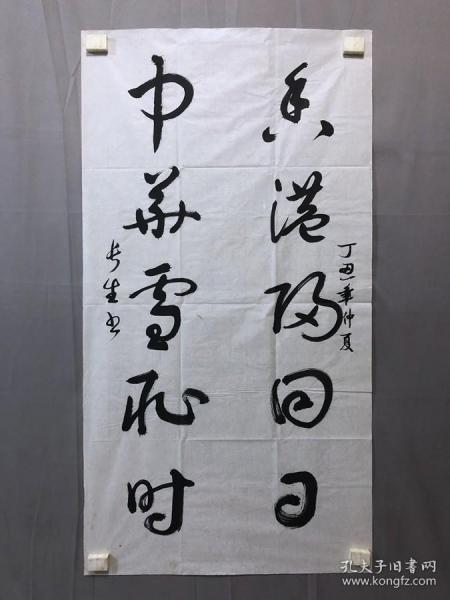 丁丑年仲夏
香港归回日
中华雪耻时
长生书
孔夫子旧书网
www.kongfz.com